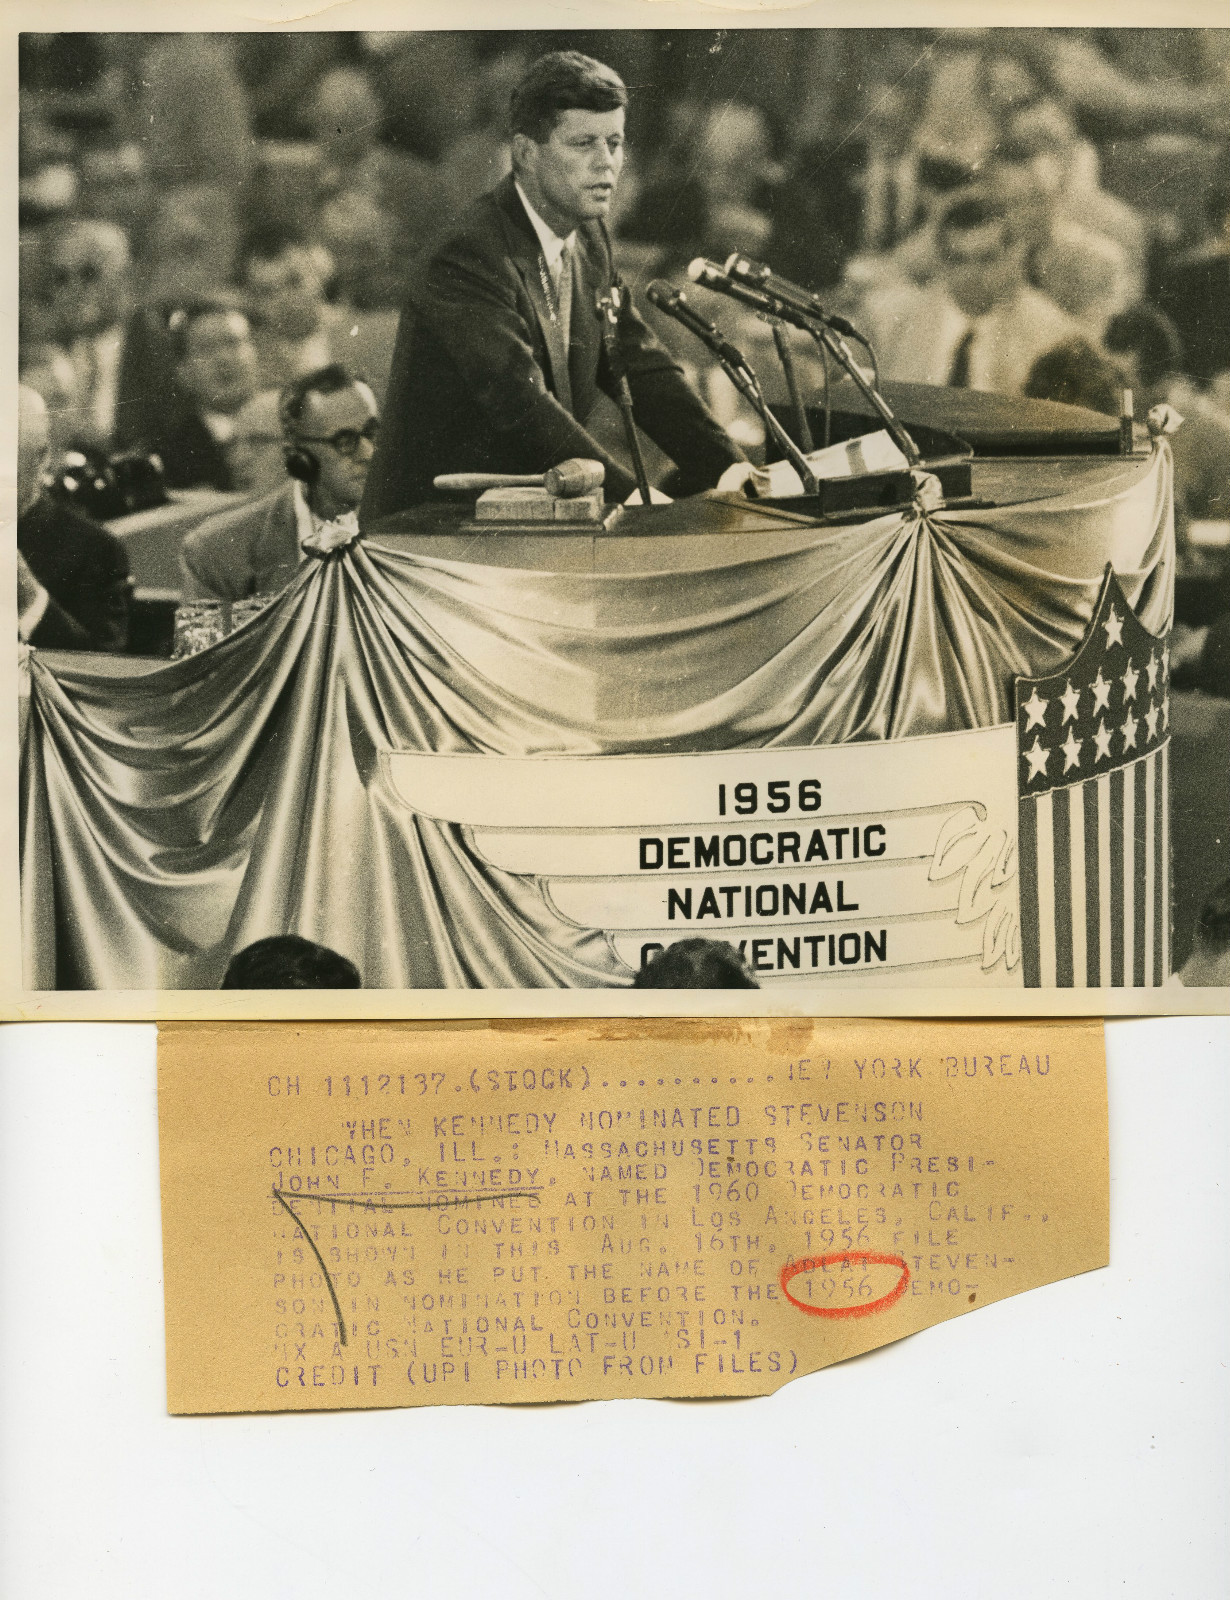 1956
DEMOCRATIC
NATIONAL
ENTION
CH 1112137.(STOCK)...........NEW YORK BUREAU
WHEN KENNEDY NOMINATED STEVENSON
CHICAGO, ILL.: MASSACHUSETTS SENATOR
JOHN F. KENNEDY, NAMED DEMOCRATIC PRESI-
DENTIAL NOMINEE AT THE 1960 DEMOCRATIC
NATIONAL CONVENTION IN LOS ANGELES, CALIF.,
IS SHOWN IN THIS AUG. 16TH, 1956 FILE
PHOTO AS HE PUT THE NAME OF ADLAI STEVEN-
SON IN NOMINATION BEFORE THE 1956 DEMO-
CRATIC NATIONAL CONVENTION.
A USN EUR-U LAT-U SI-1
CREDIT (UPI PHOTO FROM FILES)